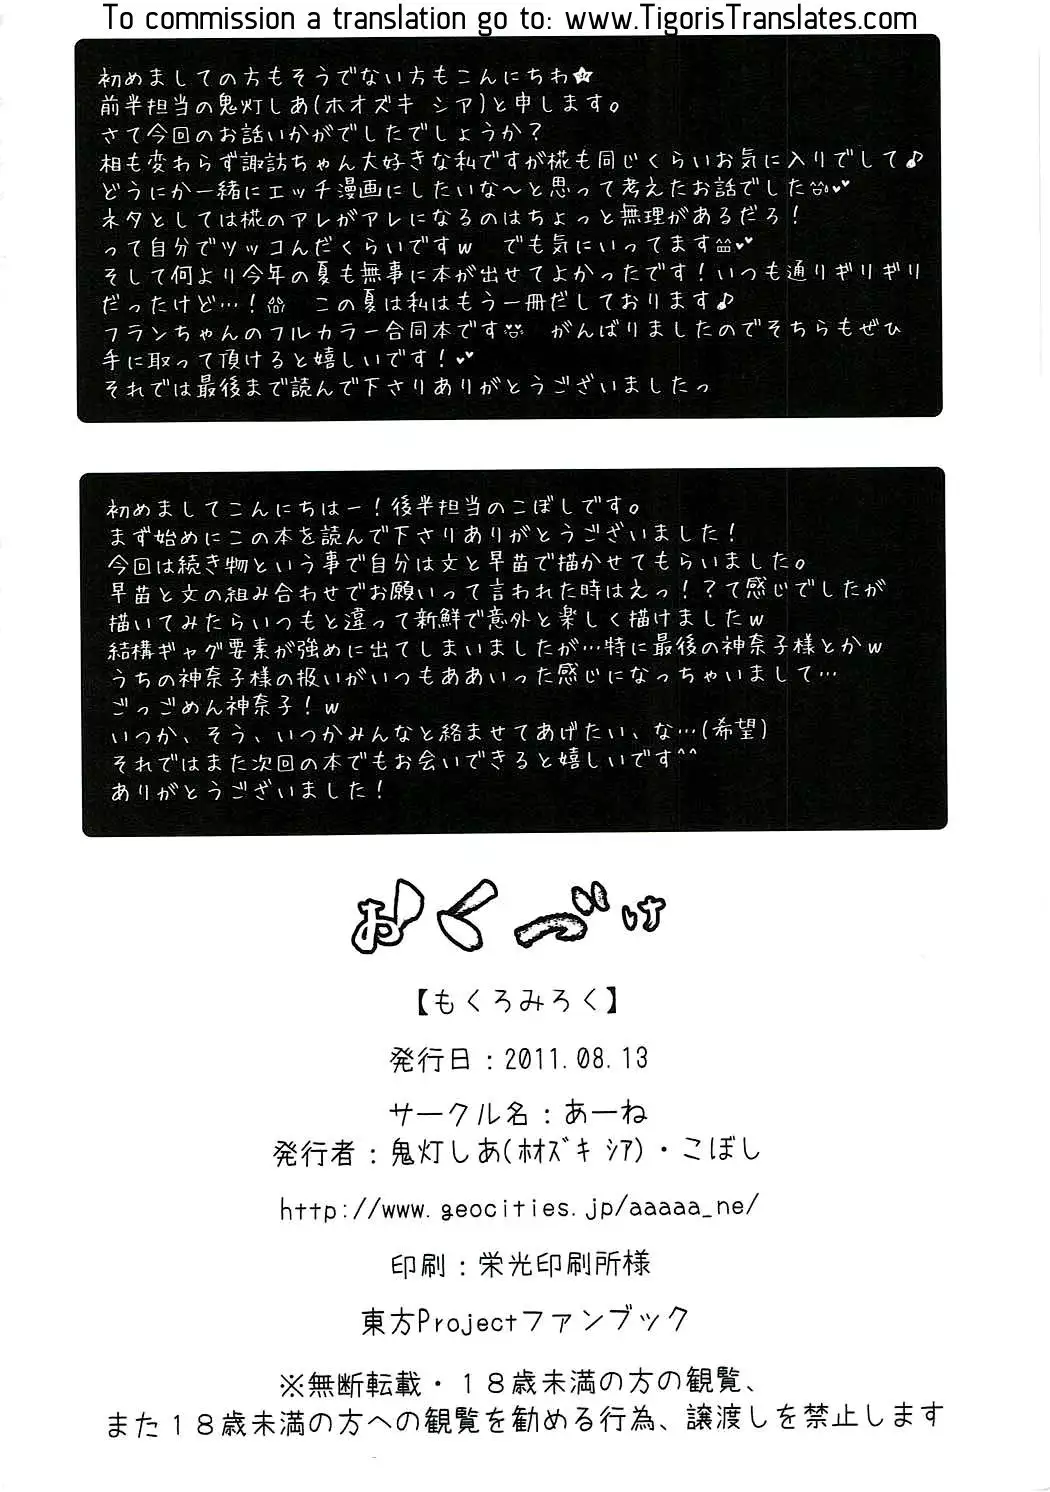 To commission a translation go to: www.TigorisTranslates.com
初めましての方もそうでない方もこんにちわ★
前半担当の鬼灯しあ(ホオズキ シア)と申します。
さて今回のお話いかがでしたでしょうか？
相も変わらず諏訪ちゃん大好きな私ですが椛も同じくらいお気に入りでして♪
どうにか一緒にエッチ漫画にしたいな～と思って考えたお話でした
ネタとしては椛のアレがアレになるのはちょっと無理があるだろ！
って自分でツッコんだくらいですｗ　でも気にいってます
そして何より今年の夏も無事に本が出せてよかったです！いつも通りギリギリ
だったけど…！　この夏は私はもう一冊だしております♪
フランちゃんのフルカラー合同本です　がんばりましたのでそちらもぜひ
手に取って頂けると嬉しいです！
それでは最後まで読んで下さりありがとうございましたっ
初めましてこんにちはー！後半担当のこぼしです。
まず始めにこの本を読んで下さりありがとうございました！
今回は続き物という事で自分は文と早苗で描かせてもらいました。
早苗と文の組み合わせでお願いって言われた時はえっ！？て感じでしたが
描いてみたらいつもと違って新鮮で意外と楽しく描けましたｗ
結構ギャグ要素が強めに出てしまいましたが…特に最後の神奈子様とかｗ
うちの神奈子様の扱いがいつもああいった感じになっちゃいまして…
ごっごめん神奈子！ｗ
いつか、そう、いつかみんなと絡ませてあげたい、な…(希望)
それではまた次回の本でもお会いできると嬉しいです^^
ありがとうございました！
おくづけ
【もくろみろく】
発行日：2011.08.13
サークル名：あーね
発行者：鬼灯しあ(ﾎｵｽﾞｷ ｼｱ)・こぼし
http://www.geocities.jp/aaaaa_ne/
印刷：栄光印刷所様
東方Projectファンブック
※無断転載・１８歳未満の方の観覧、
また１８歳未満の方への観覧を勧める行為、譲渡しを禁止します